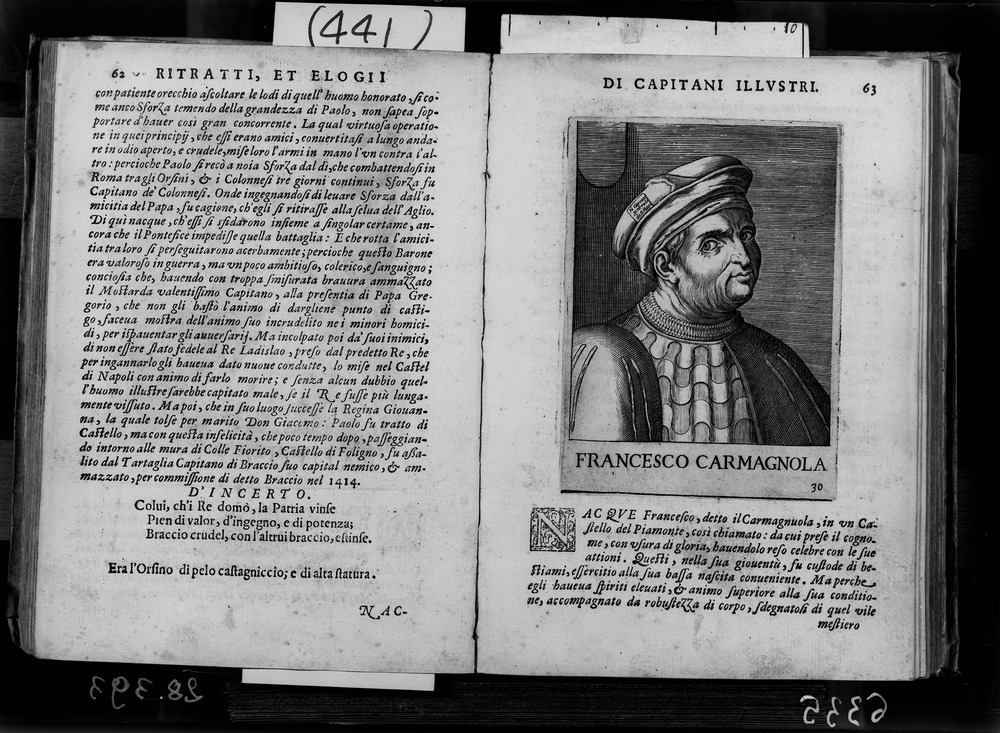 (441)
10
62 RITRATTI, ET ELOGII
con patiente orecchio ascoltare le lodi di quell'huomo honorato, sico-
me anco Sforza temendo della grandezza di Paolo, non sapea sop-
portare d'hauer così gran concorrente. La qual virtuosa operatio-
ne in quei principij, che essi erano amici, conuertitasi a lungo anda-
re in odio aperto, e crudele, mise loro l'armi in mano l'vn contra l'al-
tro: percioche Paolo si recò a noia Sforza dal dì, che combattendosi in
Roma tra gli Orsini, & i Colonnesi tre giorni continui, Sforza fu
Capitano de' Colonnesi. Onde ingegnandosi di leuare Sforza dall'a-
micitia del Papa, fu cagione, ch'egli si ritirasse alla selua dell'Aglio.
Di quì nacque, ch'essi si sfidarono insieme a singolar certame, an-
cora che il Pontefice impedisse quella battaglia: E che rotta l'amici-
tia tra loro si perseguitarono acerbamente; percioche questo Barone
era valoroso in guerra, ma vn poco ambitioso, colerico, e sanguigno;
conciosia che, hauendo con troppa smisurata brauura ammazzato
il Mostarda valentissimo Capitano, alla presentia di Papa Gre-
gorio, che non gli bastò l'animo di dargliene punto di casti-
go, faceua mostra dell'animo suo incrudelito ne i minori homici-
di, per ispauentar gli auuersarij. Ma incolpato poi da' suoi inimici,
di non essere stato fedele al Re Ladislao, preso dal predetto Re, che
per ingannarlo gli haueua dato nuoue condutte, lo mise nel Castel
di Napoli con animo di farlo morire; e senza alcun dubbio quel-
l'huomo illustre sarebbe capitato male, se il Re fusse più lunga-
mente vissuto. Ma poi, che in suo luogo successe la Regina Giouan-
na, la quale tolse per marito Don Giacomo: Paolo fu tratto di
Castello, ma con questa infelicità, che poco tempo dopo, passeggian-
do intorno alle mura di Colle Fiorito, Castello di Foligno, fu assa-
lito dal Tartaglia Capitano di Braccio suo capital nemico, & am-
mazzato, per commissione di detto Braccio nel 1414.
D'INCERTO.
Colui, ch'i Re domò, la Patria vinse
Pien di valor, d'ingegno, e di potenza;
Braccio crudel, con l'altrui braccio, estinse.
Era l'Orsino di pelo castagniccio; e di alta statura.
NAC-
DI CAPITANI ILLVSTRI. 63
FRANCESCO CARMAGNOLA
30
NACQVE Francesco, detto il Carmagnuola, in vn Ca-
stello del Piamonte, così chiamato: da cui prese il cogno-
me, con vsura di gloria, hauendolo reso celebre con le sue
attioni. Questi, nella sua giouentù, fu custode di be-
stiami, essercitio alla sua bassa nascita conueniente. Ma perche
egli haueua spiriti eleuati, & animo superiore alla sua conditio-
ne, accompagnato da robustezza di corpo, sdegnatosi di quel vile
mestiero
28.393
6335